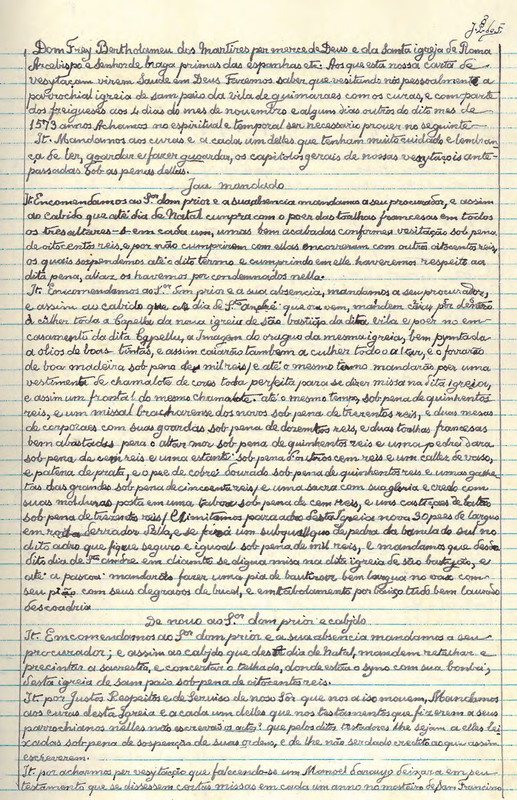 Dom Frey Bertholameu dos Martires per merce de Deus e da Santa igreja de Roma
Arcebispo e Senhor de braga primas das espanhas etc. Aos que esta nossa carta de
vesytaçam virem Saude em Deus. Faremos saber que vesitando nós pessoalmente a
parochial igreia de sam paio da vila de guimaraes com os curas, e com parte
dos freigueses aos 4 dias do mes de novembro e alguns dias outros do dito mes de
1573 annos Achamos no espiritual e temporal ser necesario prover no seguinte
It. Mandamos aos curas e a cada um delles que tenham muito cuidado e lembran
ça de ler, goardar e fazer guoardar, os capitolos gerais de nossas vesytaçois ante-
passadas sob as penas dellas.
Jaa mandado
It. Encomendamos ao Sor dom prior e a sua absencia mandamos a seu procurador, e assim
ao cabido que até dia de Natal cumpra com o poer das toalhas francesas em todos
os tres altares em cada um, umas bem acabadas conforme a vesitação sob pena
de oitocentos reis, e por não cumprirem com ellas encorrerem com outros oitocentos reis,
os quais sospendemos até o dito termo e cumprindo em elle haveremos respeito aa
dita pena, alias os havemos por condemnados nella.
It. Encomendamos ao Sor Dom prior e a sua absencia, mandamos a seu procurador,
e assim ao cabido que até dia de Sto André que ora vem, mandem caiar por dentro
a culher toda a Capella da nova igreia de são bastião da dita vila e poer no em
casamento da dita Cappella, a Imagem do orago da mesma igreia, bem pyntada
a olios de boas tintas, e assim caiarão tambem a culher todo o altar, e o forrarão
de boa madeira sob pena de mil reis / e até o mesmo termo mandarão poer uma
vestimenta de chamalote de cores toda perfeita para se dizer missa na dita igreja,
e assim um frontal do mesmo chamalote até o mesmo tempo, sob pena de quinhentos
reis, e um missal bracharense dos novos sob pena de trezentos reis, e duas mesas
de corporaes com suas goardas sob pena de dozentos reis, e duas toalhas francesas
bem abastadas pera o altar mor sob pena de quinhentos reis e uma pedra dara
sob pena de cem reis e uma estante sob pena doutros cem reis e um calles de vaso,
e patena de prata, e o pee de cobre dourado sob pena de quinhentos reis e umas galhe
tas das grandes sob pena de cincoenta reis, e uma sacra com sua gloria e credo com
suas molduras posta em uma taboa sob pena de cem reis, e uns castiçaes de latão
sob pena de trezentos reis / E limitamos para adro desta Igreia nova 30 pees de largue
em roda
dito adro que fique seguro e iguoal sob pena de mil reis, e mandamos que desdo
dito dia de Sto andre em diante se digua missa na dita igreia de são bastião, e
até a pascoa mandarão fazer uma pia de bautizar bem largua no vaso com
seu pião com seus degraos de
De novo ao Sor dom prior e cabido
It. Emcomendamos ao Sor dom prior e a sua absencia mandamos a seu
procurador; e assim ao cabido que desta dia de Natal, mandem retelhar e
precintar a sacrestia, e concertar o telhado, donde estáa o syno com sua bomba,
desta igreia de sam paio sob pena de oitocentos reis.
It. por Justos Respeitos e de Serviso de nosso Sor que nos a iso movem, Mandamos
aos curas desta Igreia e a cada um delles que nos testamentos que fizerem a seus
parrochianos nelles não escrevão que pelos ditos testadores lhe sejam a elles lei
xadas sob pena de sospenção de suas ordens, e de lhe não ser dado credito ao que assim
escreverem.
It. por acharmos per vesytação que falecendo-se um Manoel deixara em seu
testamento que se dissessem certas missas em cada um anno no mosteiro de San Francisco